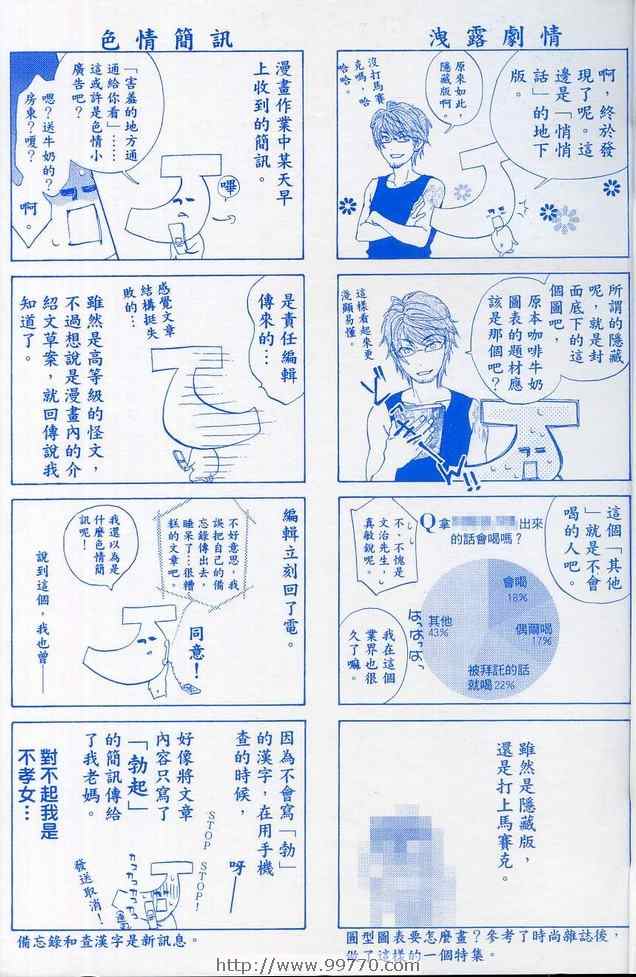 洩露劇情
啊，終於發
現了呢。這
邊是「悄悄
話」的地下
版。
原來如此，
隱藏版啊。
沒打馬賽
克嗎，哈
哈哈。
所謂的隱藏
呢，就是封
面底下的這
個圖吧，
原本咖啡牛奶
圖表的題材應
該是那個吧？
這樣看起來更
淺顯易懂。
這個「其他
」就是不會
喝的人吧。
Q拿
出來
的話會喝嗎？
會喝
18%
偶爾喝
17%
被拜託的話
就喝22%
其他
43%
不、不愧是
文治先生，
真敏銳呢。
はっはっはっ
我在這個
業界也很
久了嘛。
雖然是隱藏版，
還是打上馬賽克。
圓型圖表要怎麼畫？參考了時尚雜誌後，
做了這樣的一個特集。
色情簡訊
漫畫作業中某天早
上收到的簡訊。
嗶
「害羞的地方通
通給你看」……
這或許是色情小
廣告吧？
嗯？送牛奶的？
房東？嗄？
啊。
是責任編輯
傳來的…
感覺文章
結構挺失
敗的…
雖然是高等級的怪文，
不過想說是漫畫內的介
紹文草案，就回傳說我
知道了。
編輯立刻回了電。
不好意思，我
誤把自己的備
忘錄傳出去，
睡呆了…很糟
糕的文章吧。
同意！
我還以為是
什麼色情簡
訊呢！
說到這個，我也曾──
因為不會寫「勃」
的漢字，在用手機
查的時候，
呀──
好像將文章
內容只寫了
「勃起」
的簡訊傳給
了我老媽。
STOP STOP
STOP!
カカカカカッ
發送取消！
對不起我是
不孝女…
備忘錄和查漢字是新訊息。
http://www.99770.com